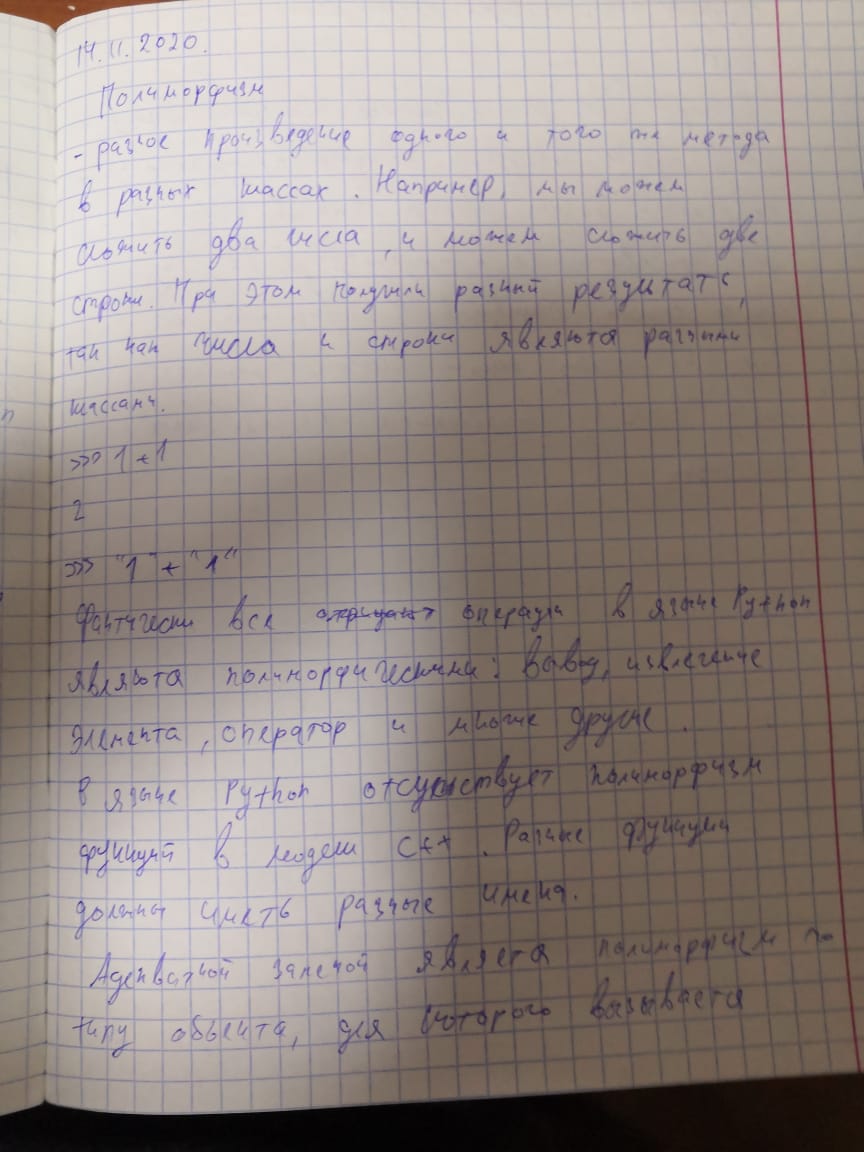 14.11.2020.
Полиморфизм
- разное произведение одного и того же метода
в разных классах. Например, мы можем
сложить два числа, и можем сложить две
строки. При этом получили разный результатс,
так как числа и строки являются разными
классами.
>>> 1+1
2
>>> "1"+"1"
Фактически все операции в языке Python
являются полиморфическими: вывод, извлечение
элемента, оператор и многие другие.
В языке Python отсутствует полиморфизм
функций в модели C++. Разные функции
должны иметь разные имена.
Адекватной заменой является полиморфизм по
типу объекта, для которого вызывается